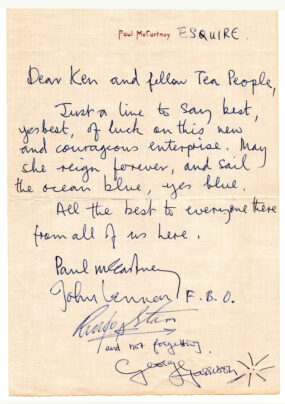 Paul McCartney ESQUIRE.
Dear Ken and fellow Tea People,
Just a line to say best,
yesbest, of luck on this new
and courageous enterprise. May
she reign forever, and sail
the ocean blue, yes blue.
All the best to everyone there
from all of us here.
Paul McCartney
John Lennon F.B.O.
Ringo Starr
and not forgetting.
George Harrison